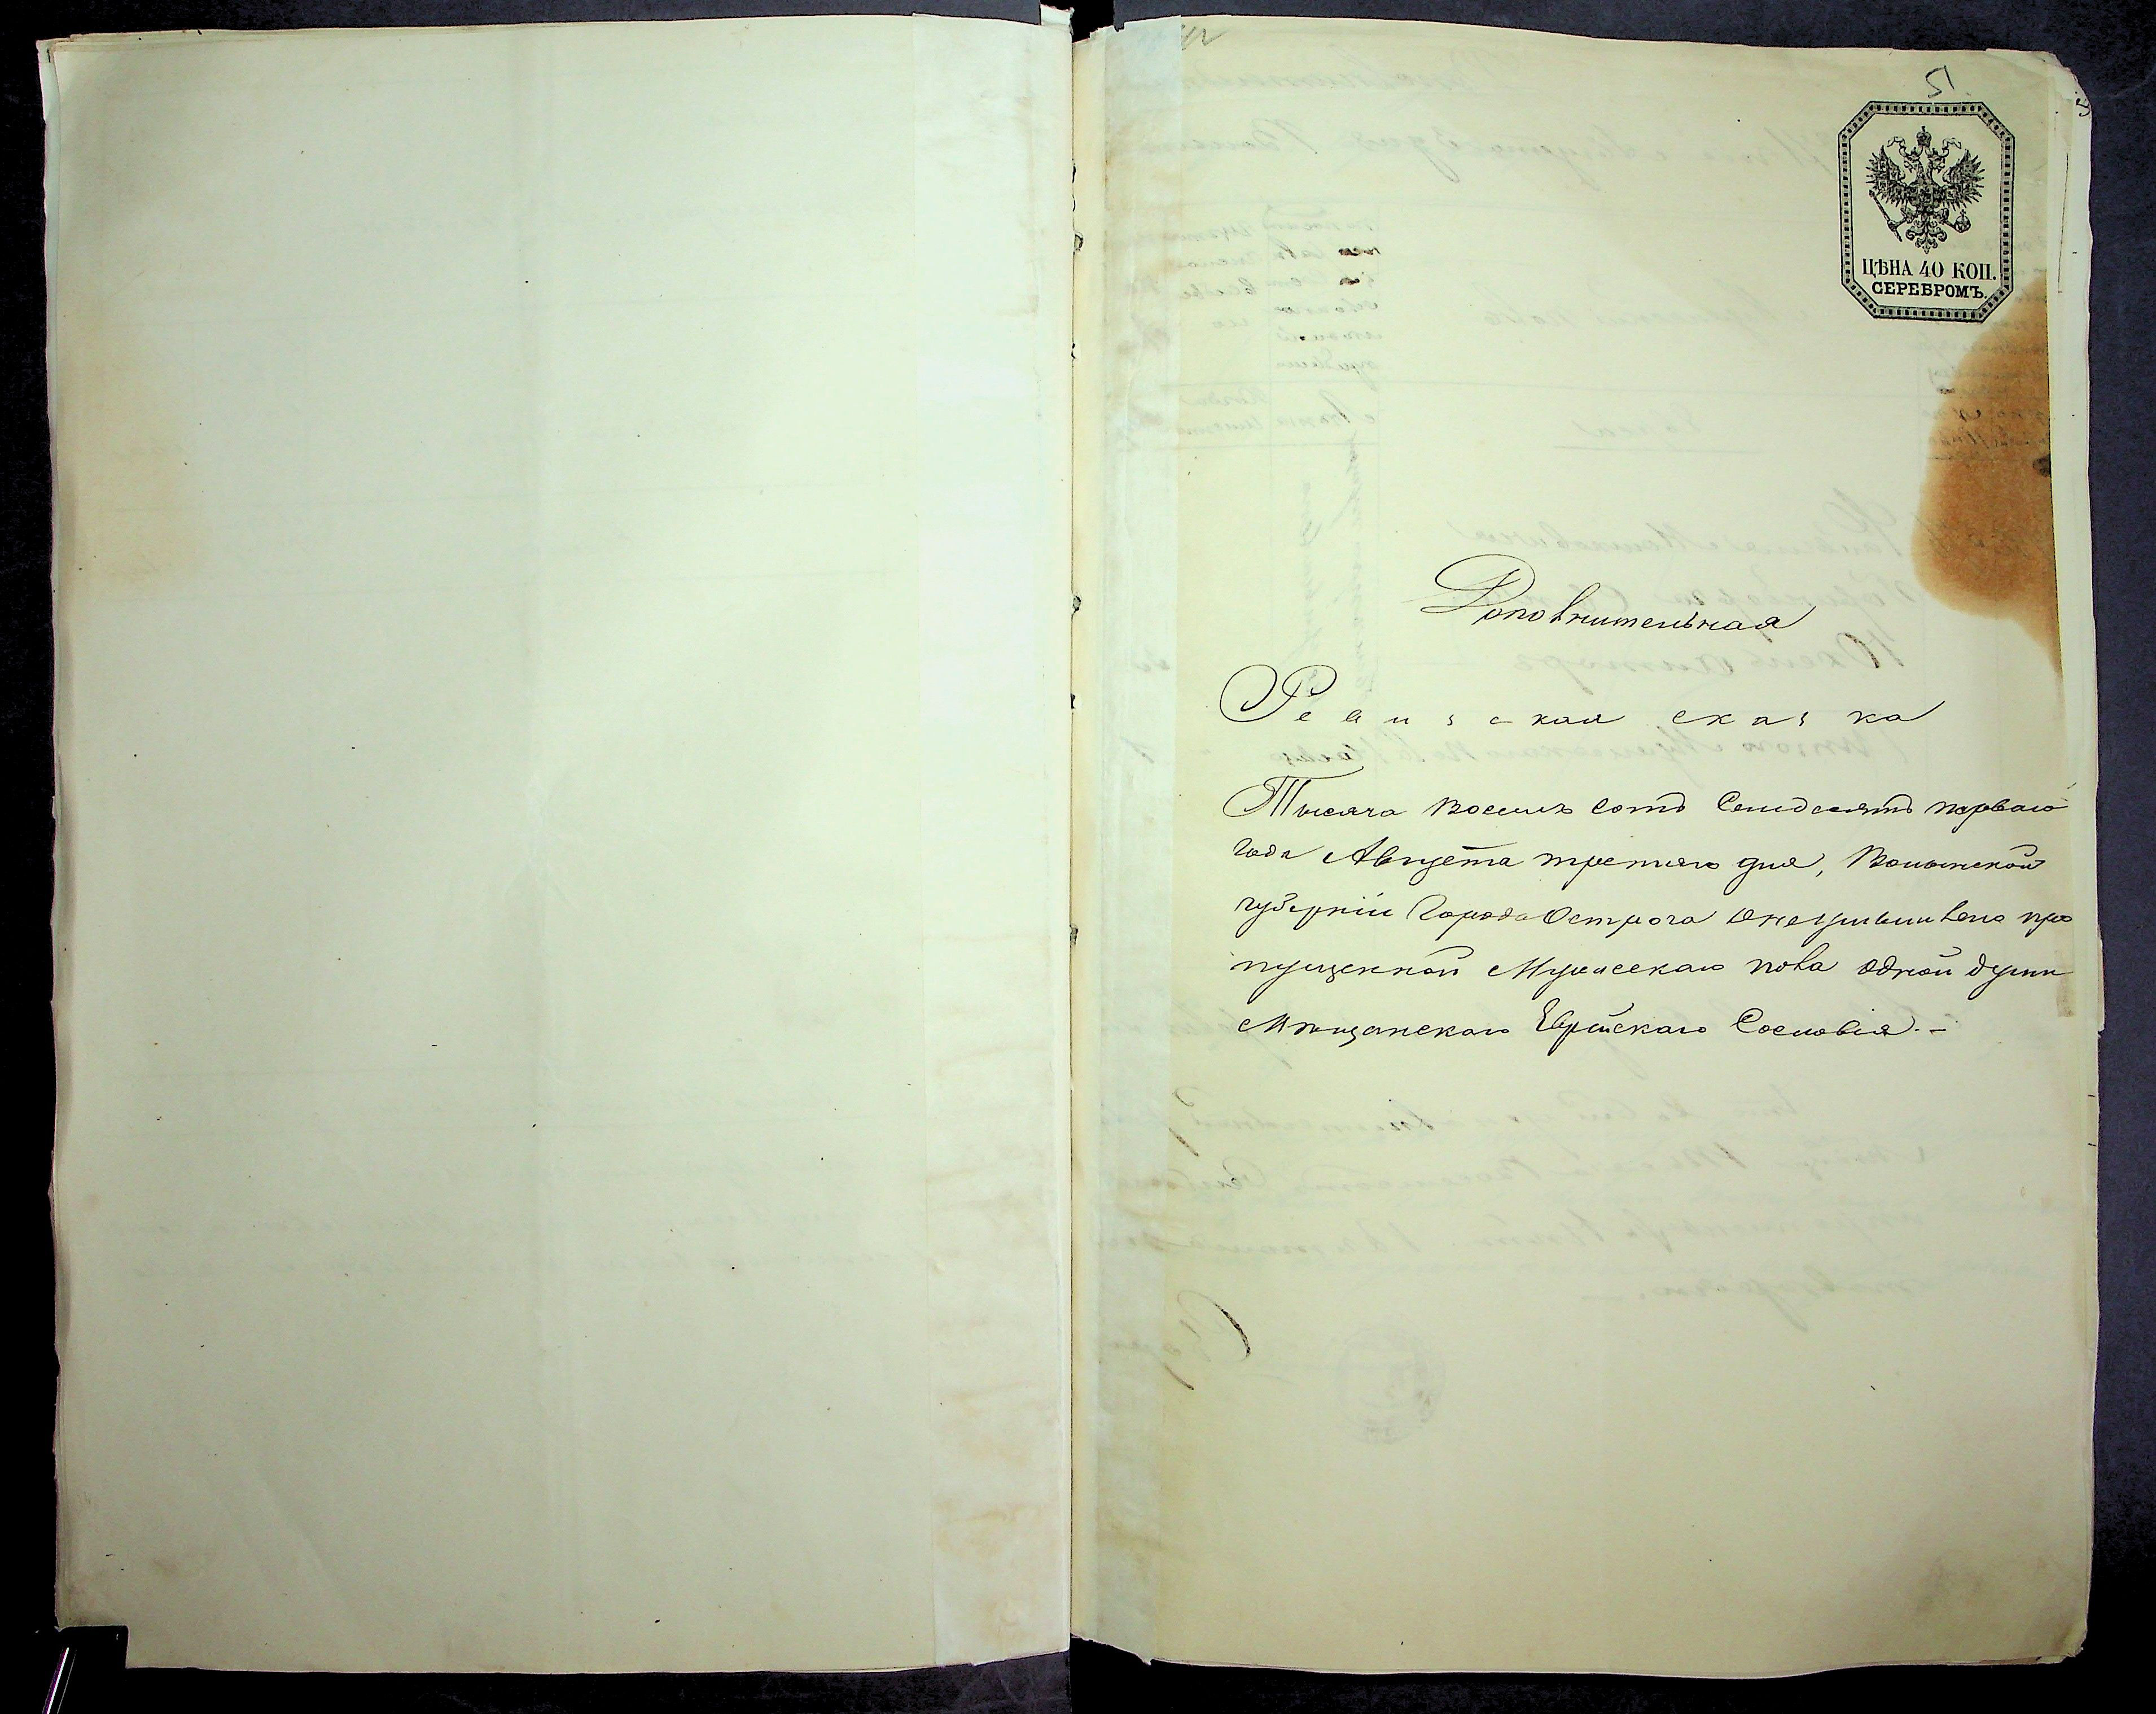 5
ЦѢНА 40 КОП.
СЕРЕБРОМЪ.
Дополнительная
Ревизская сказка
Тысяча восемь сотъ Семдесятъ перваго
года Августа третяго дня, Волынской
губерніи Города Острога о неумышленно про
пущенной Мужескаго пола одной души
Мѣщанскаго Еврейскаго Сословія.-